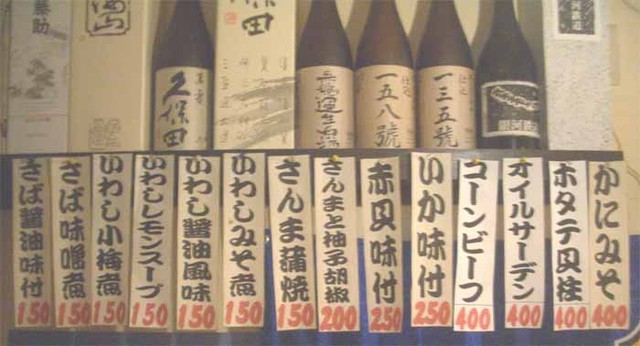 久保田
萬寿
一五八號
一三五號
かにみそ
400
ホタテ貝柱
400
オイルサーデン
400
コーンビーフ
400
いか味付
250
赤貝味付
250
さんまと柚子胡椒
200
さんま蒲焼
150
いわしみそ煮
150
いわし醤油風味
150
いわしレモンスープ
150
いわし小梅煮
150
さば味噌煮
150
さば醤油味付
150